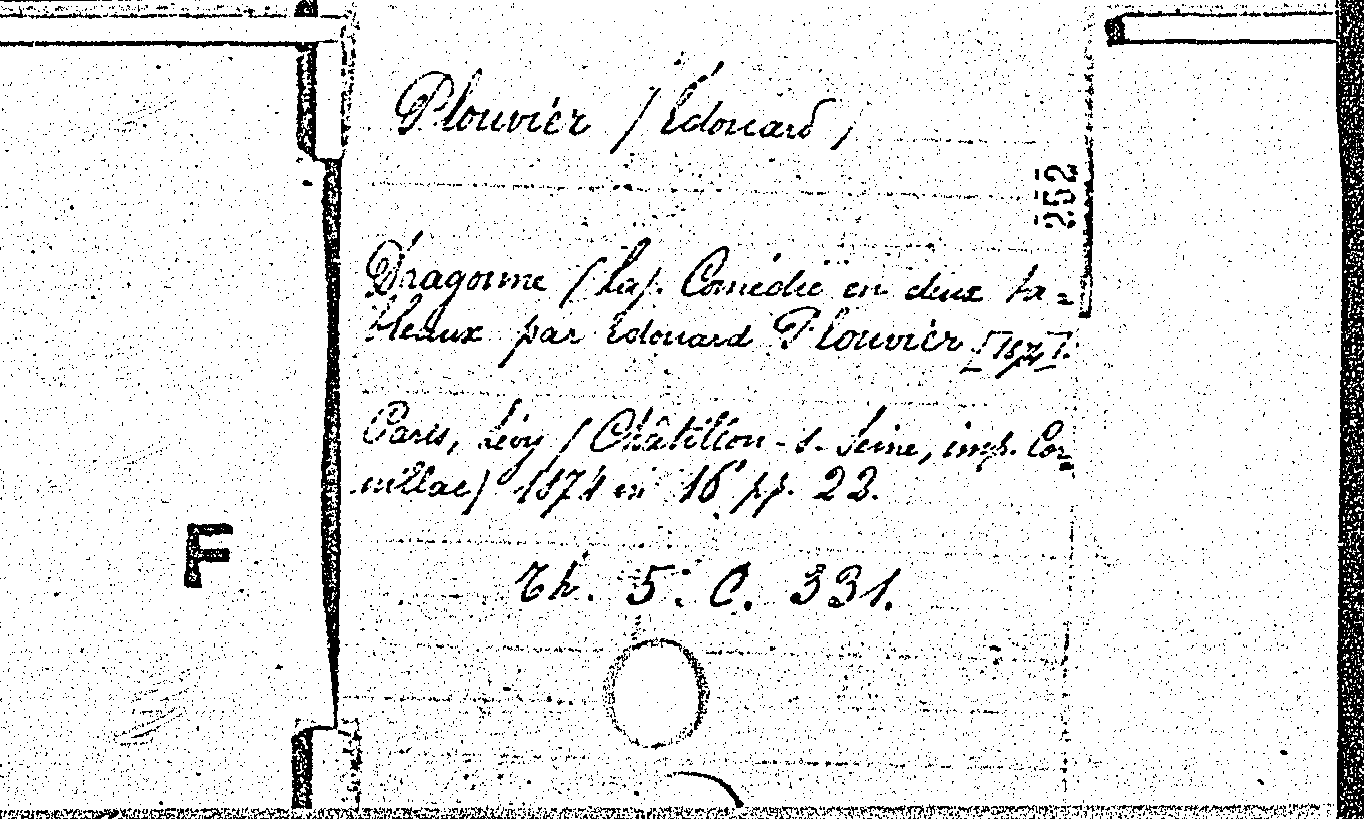 Plouvier (Édouard)
252
Dragonne (La). Comédie en deux ta-
bleaux par Edouard Plouvier [1874].
Paris, Lévy (Châtillon-s-Seine, imp. Cor-
nillac) 1874 in 16 pp. 23.
F
Th. 5: C. 331.